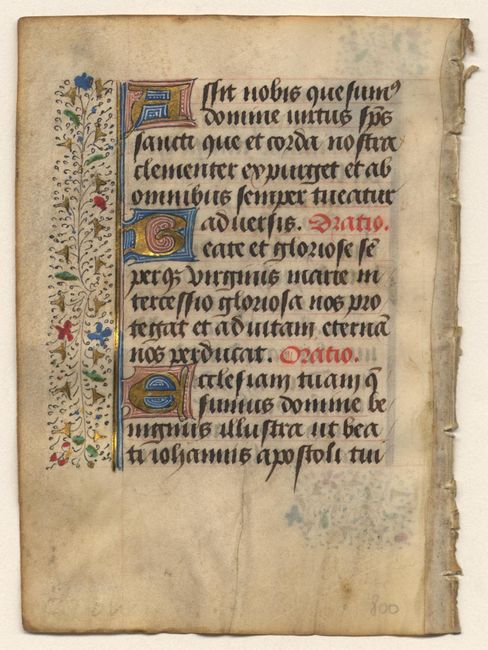 Assit nobis quesumꝰ
domine virtus sp̄s
sancti que et corda nostra
clementer expurget et ab
omnibus semper tueatur
adversis. Oratio.
Beate et gloriose sē
perqꝫ virginis marie in
tercessio gloriosa nos pro
tegat et ad vitam eternā
nos perducat. Oratio.
Ecclesiam tuam q̄
sumus domine be
nignus illustra ut bea
ti iohannis apostoli tui
800